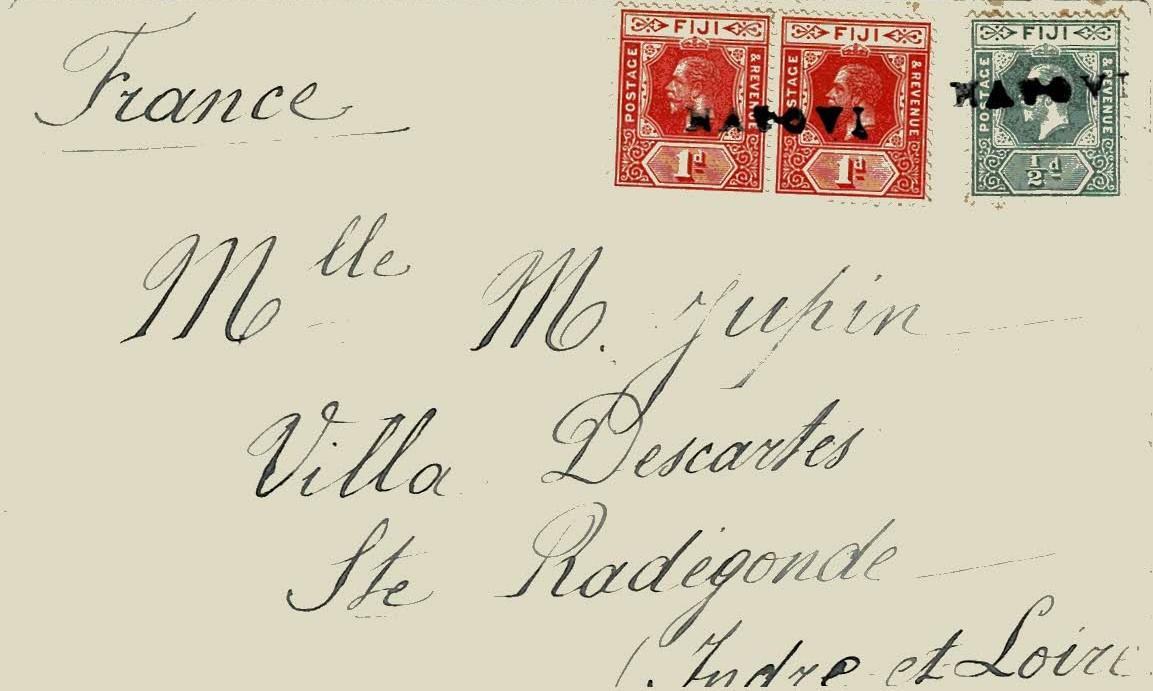 France
FIJI
POSTAGE & REVENUE
1d
FIJI
POSTAGE & REVENUE
1d
FIJI
POSTAGE & REVENUE
½d
Mlle M. Jupin
Villa Descartes
Ste Radégonde
(Indre et Loire